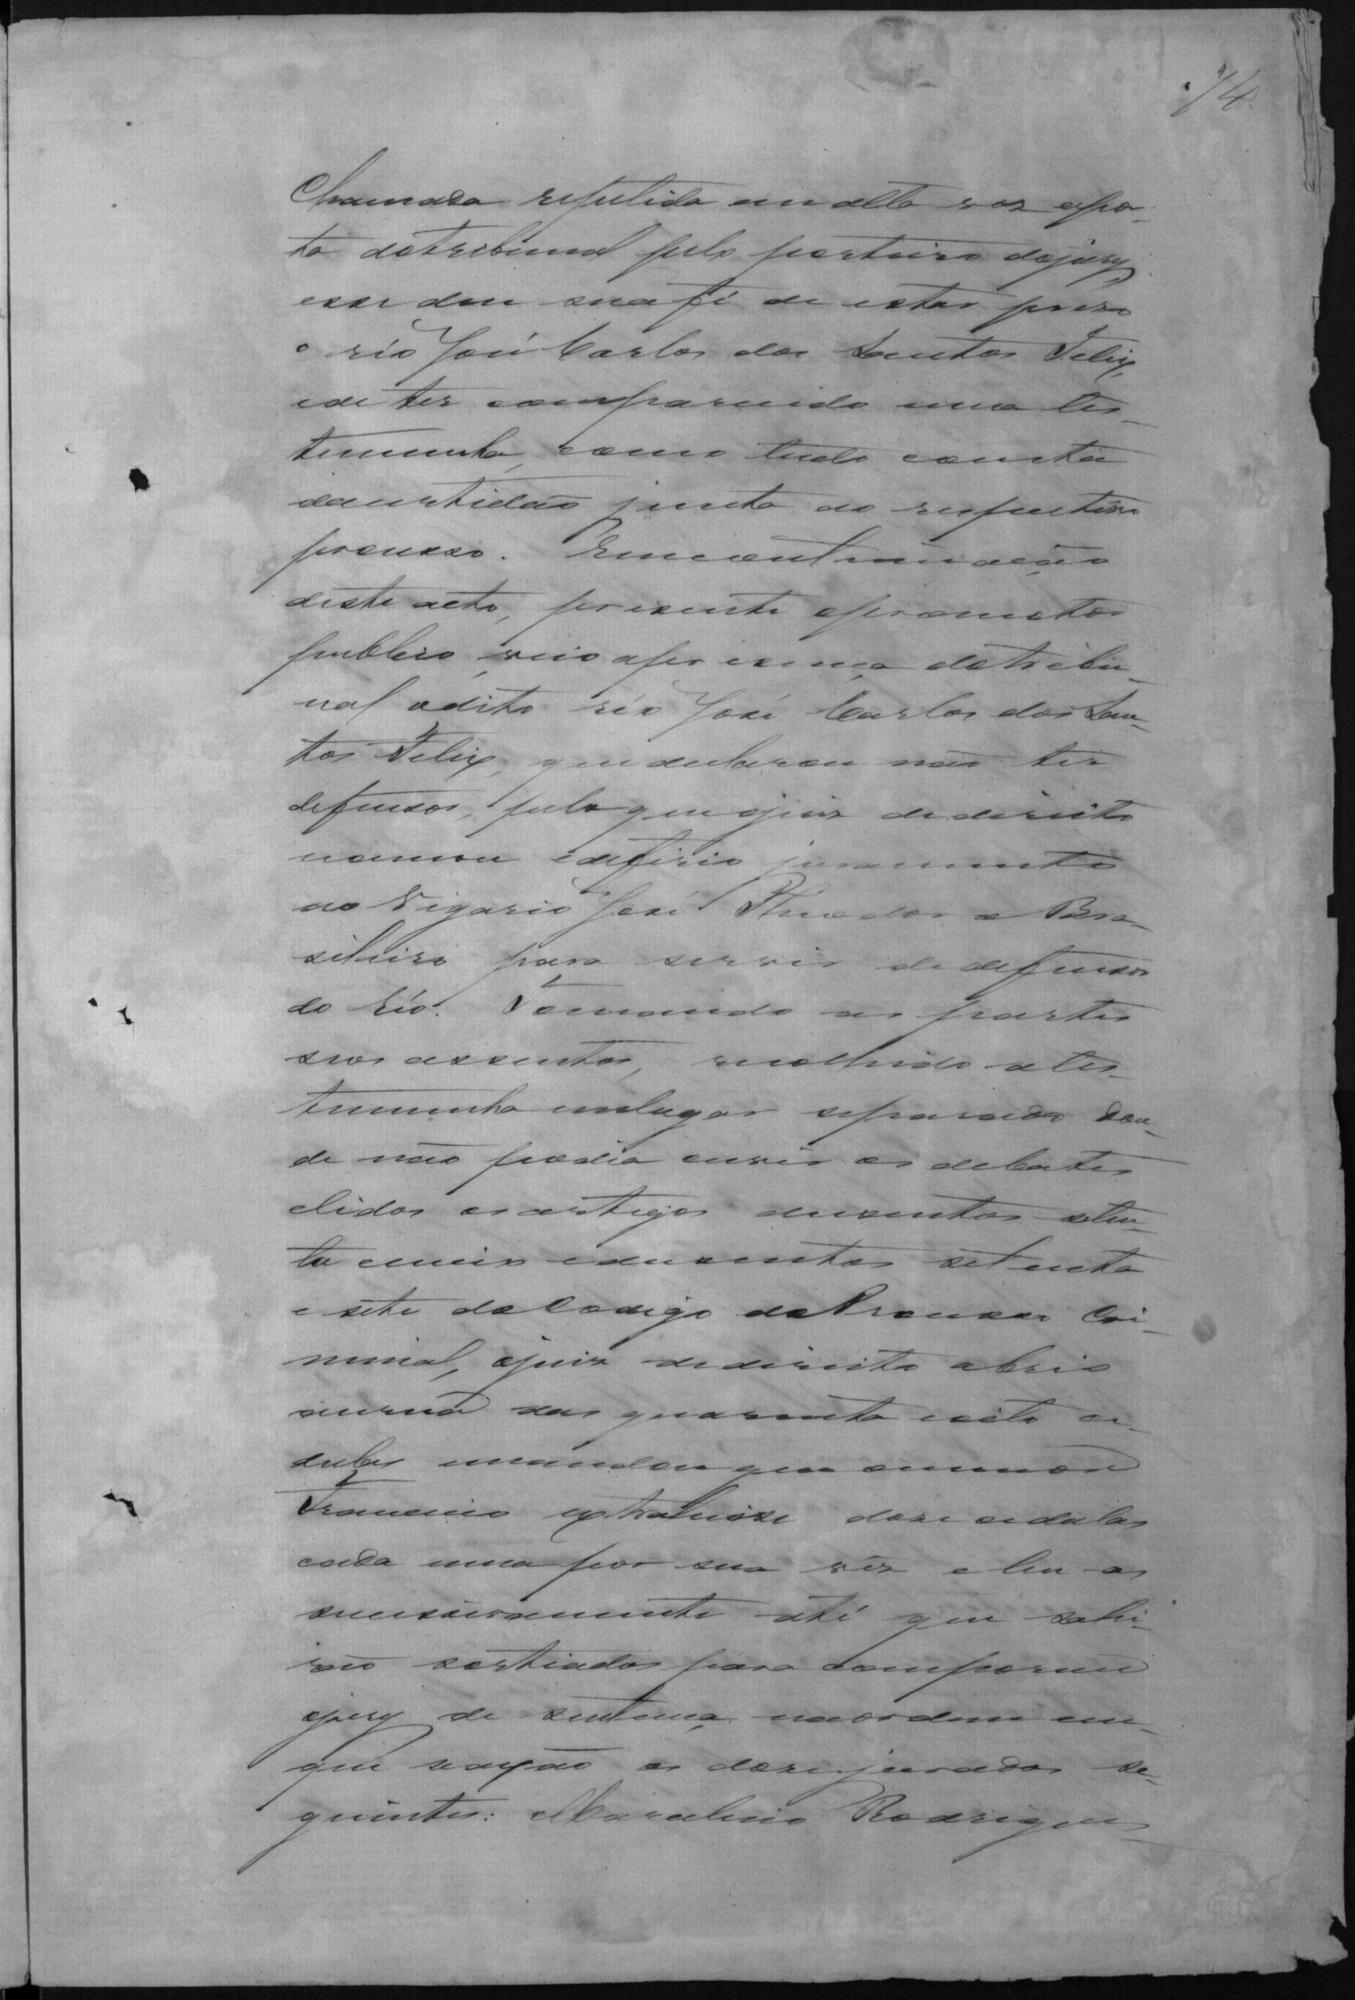 74
Chamada repetida em alta voz a por-
ta do tribunal pelo porteiro do jury,
esse deu sua fé de estar preso
o réo José Carlos dos Santos Felix,
e de ter comparecido uma tes-
temunha, como tudo consta
da certidão junta ao respectivo
processo. Em continuação
deste acto, presente o promotor
publico, veio a presença do tribu-
nal o dito réo José Carlos dos San-
tos Felix, que declarou não ter
defensor, pelo que o juiz de direito
nomeou e deferio juramento
ao Vigario José Theodoro Bra-
sileiro para servir de defensor
do réo. Tomando as partes
seos assentos, recolhido a tes-
temunha em lugar separado don-
de não podia ouvir os debates
e lidos os artigos duzentos seten-
ta e seis e duzentos setenta
e sete do Codigo do Processo Cri-
minal, o juiz de direito abrio
a urna das quarenta e oito ce-
dulas e mandou que o menor
Francisco extrahisse doze cedulas
cada uma por sua vez e leu as
successivamente até que sahi-
rão sortiados para comporem
o jury de sentença na ordem em
que vão os doze jurados se-
guintes: Marcelino Rodrigues